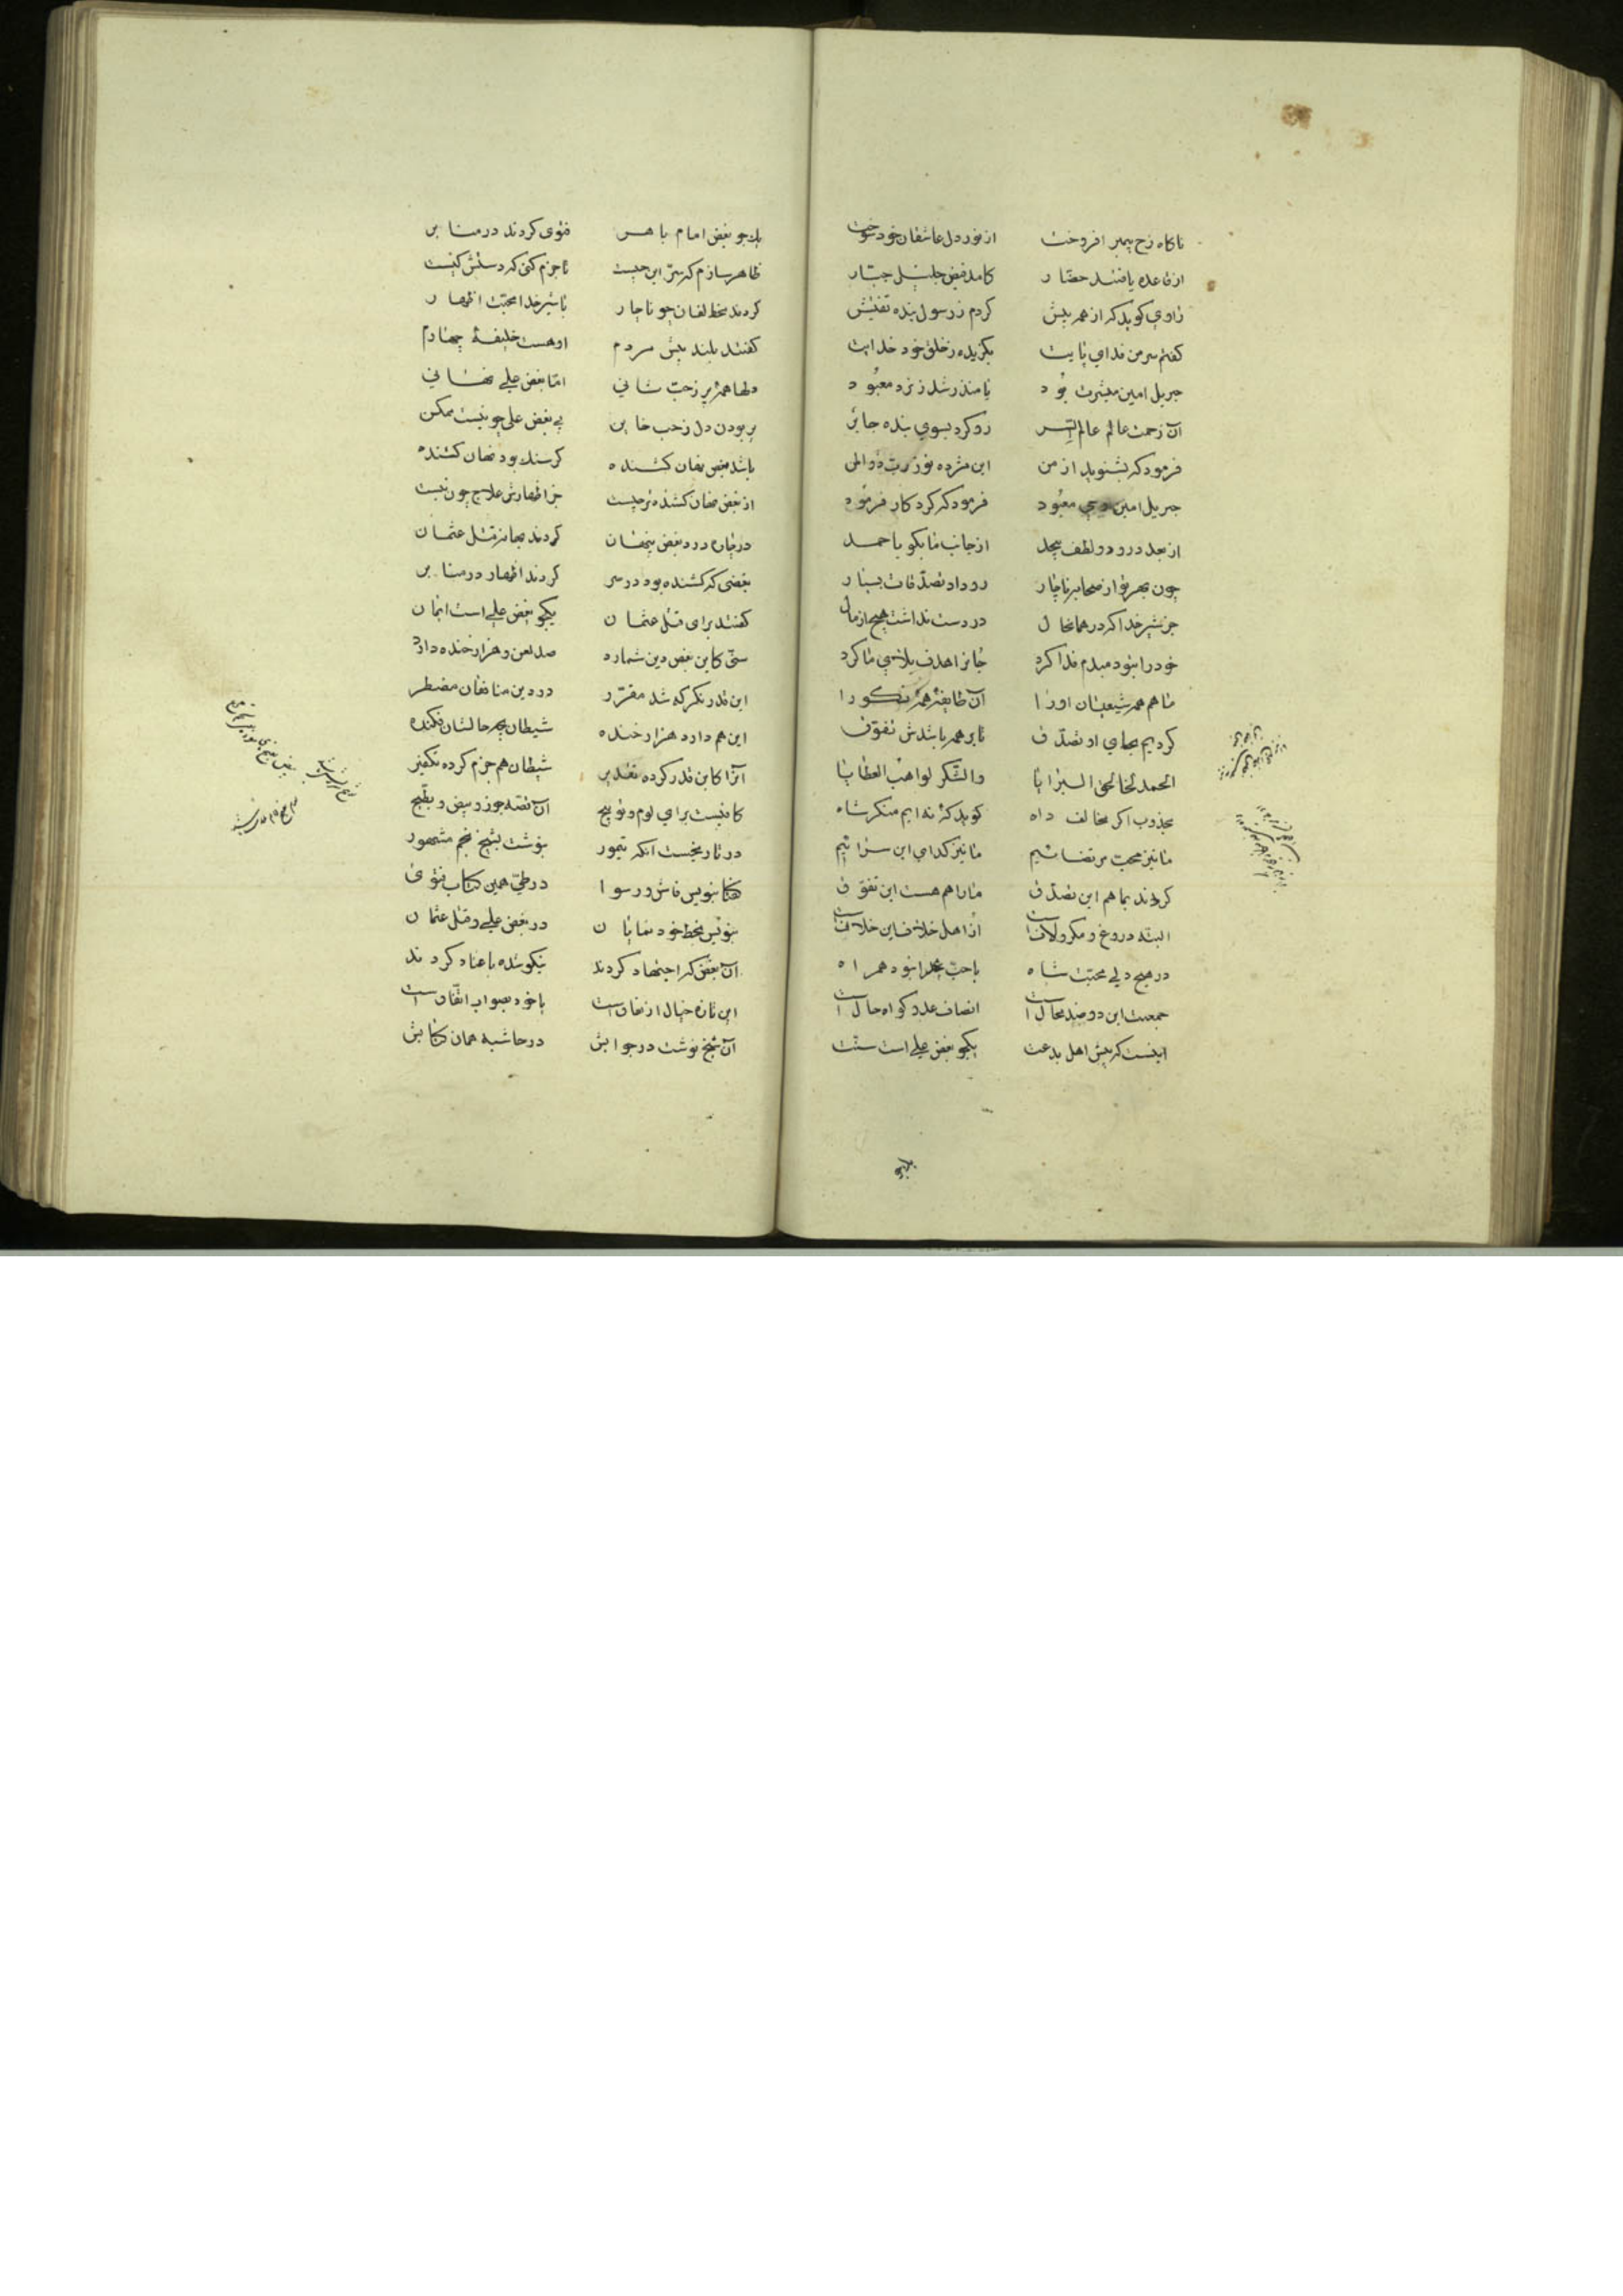 ناکاه رخ پیمبر افروخت از نور دل عاشقان خود سوخت
از قاعده یافتند حضار کامد فیض جلیل جبار
راوی کوید که از همه بیش کردم ز رسول بنده تفتیش
کفتم سر من فدای پایت بکزیده ز خلق خود خدایت
جبریل امین مبشرت بود یا منذر شد ز نزد معبود
آن رحمت عالم عالم السر رو کرد بسوی بنده جابر
فرمود که بشنوید از من این مژده نو ز رب ذوالمن
جبریل امین وحی معبود فرمود که کردکار فرمود
از بعد درود و لطف بیحد از جانب ما بکو باحمد
چون بهر نوا ز صحابه ناچار رو داد تصدقات بسیار
جز شیر خدا که در همانحال در دست نداشت هیچ از مال
خود را بنو دمبدم فدا کرد جانرا هدف بلای ما کرد
ما هم همه شیعیان او را آن طایفه همه نکو را
کردیم بجای او تصدق تا بر همه باشدش تفوق
الحمد لخالق البرایا والشکر لواهب العطایا
مجذوب اکر مخالف داه کوید که نه ایم منکر شاه
ما نیز محب مرتضائیم ما نیز کدای این سرائیم
کردند بما هم این تصدق مارا هم هست این تفوق
البته دروغ و مکر و لافست از اهل خلاف این خلافست
در هیچ دلی محبت شاه با حب عدا نبود همراه
جمعیت این دو ضد محالست انصاف عدو کواه حالست
اینست که پیش اهل بدعت یکجو بغض علی است سنت
یکجو
یکجو بغض امام باهر فتوی کردند در منابر
ظاهر سازم که سر این چیست تا جزم کنی که دستش کیست
کردند مخالفان چو ناچار با شیر خدا محبت اظهار
کفتند بلند پیش مردم او هست خلیفهٔ چهارم
دلها همه پر ز حب شانی اما بغض علی نهانی
پر بودن دل ز حب خاین بی بغض علی چو نیست ممکن
باشد بغض نهان کشنده کرسنک بود نهان کشنده
از بغض نهان کشنده تر چیست جز اظهارش علاج چون نیست
در چاره درد بغض پنهان کردند بهانه قتل عثمان
بغضی که کشنده بود در سر کردند اظهار در منابر
کفتند برای قتل عثمان یکجو بغض علی است ایمان
سنی کاین بغض دین شمارد صد لعن و هزار خنده دارد
این قدر نکر که شد مقرر در دین منافقان مضطر
این هم دارد هزار خنده شیطان بچه حالشان فکنده
آنرا کاین قدر کرده تقدیر شیطان هم جزم کرده تکفیر
کافیست برای لوم و توبیخ آن قصه جوز و بیض و بطیخ
در تاریخست آنکه تیمور بنوشت بشیخ نجم مشهور
هکذا بنویس فاش و رسوا در طی همین کتاب فتوی
بنویس بخط خود نمایان در بغض علی و قتل عثمان
آن بغض که اجتهاد کردند نیکو شده یا عناد کردند
این تازه خیال از نفاقست یا خود بصواب اتفاقست
آن شیخ نوشت در جوابش در حاشیه همان کتابش